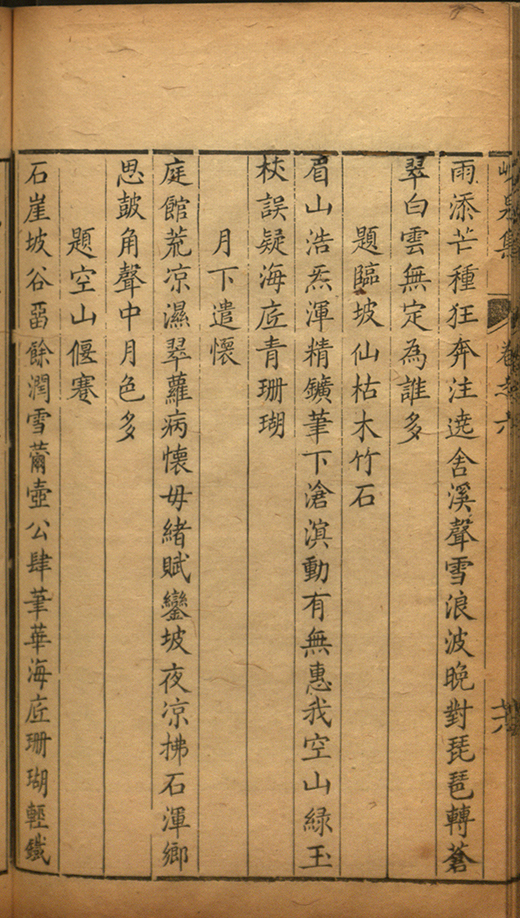 峴泉集
卷之六
雨添芒種狂奔注遶舍溪聲雪浪波晚對琵琶轉蒼
翠白雲無定為誰多
題臨坡仙枯木竹石
眉山浩炁渾精鑛筆下滄溟動有無惠我空山綠玉
杖誤疑海底青珊瑚
月下遣懷
庭館荒凉濕翠蘿病懷毋緒賦鑾坡夜凉拂石渾鄉
思皷角聲中月色多
題空山偃蹇
石崖坡谷畱餘潤雪薾壺公肆筆華海底珊瑚輕鐵